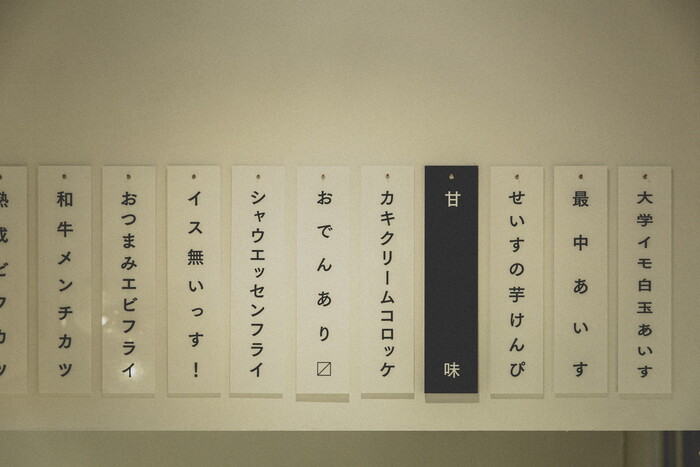 大学イモ白玉あいす
最中あいす
せいすの芋けんぴ
甘味
カキクリームコロッケ
おでんあり〼
シャウエッセンフライ
イス無いっす！
おつまみエビフライ
和牛メンチカツ
熟成ビフカツ